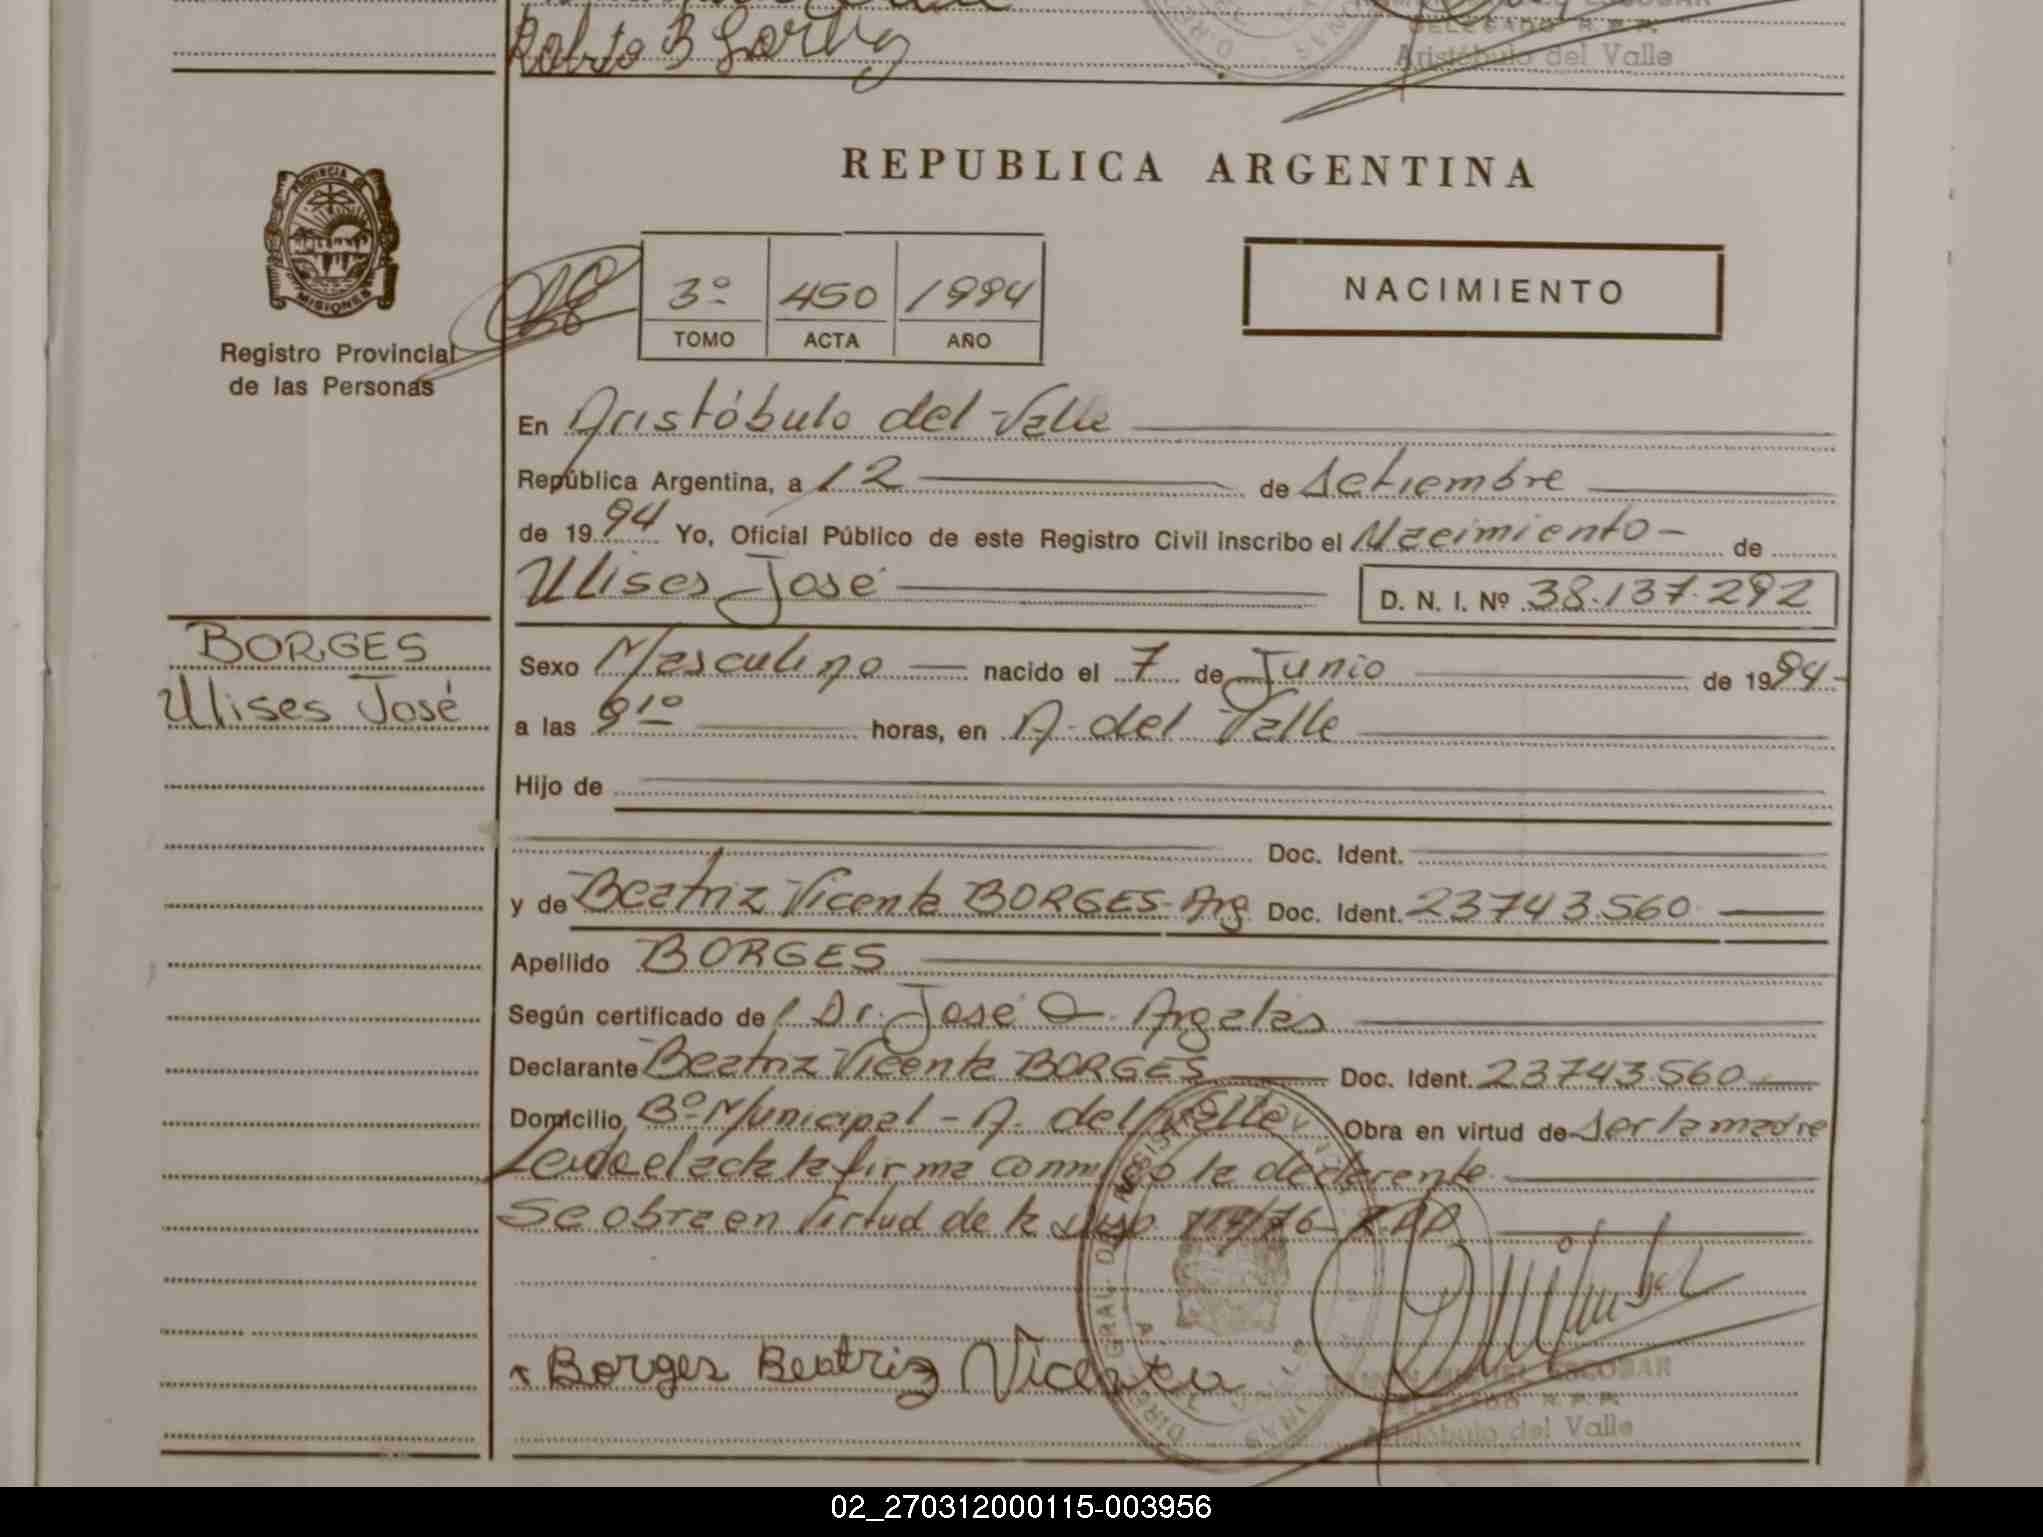 Roberto B
DELEGADO R.P.P.
Aristóbulo del Valle
REPUBLICA ARGENTINA
PROVINCIA DE MISIONES
Registro Provincial
de las Personas
3º 450 1994
TOMO ACTA AÑO
NACIMIENTO
En Aristóbulo del Valle
República Argentina, a 12 de Setiembre
de 1994 Yo, Oficial Público de este Registro Civil inscribo el Nacimiento - de
Ulises José D. N. I. Nº 38.137.292
BORGES
Ulises José
Sexo Masculino nacido el 7 de Junio de 1994-
a las 9,10 horas, en A. del Valle
Hijo de
Doc. Ident.
y de Beatriz Vicenta BORGES- Arg. Doc. Ident. 23743.560
Apellido BORGES
Según certificado de Dr. José O. Argalas
Declarante Beatriz Vicenta BORGES Doc. Ident. 23743.560
Domicilio Bº Municipal - A. del Valle Obra en virtud de ser la madre
Leída el acta la firma conmigo la declarante
Se obra en virtud de la Disp.
Borges Beatriz Vicenta
RAMON MIGUEL ESCOBAR
DELEGADO R.P.P.
Aristóbulo del Valle
02_270312000115-003956